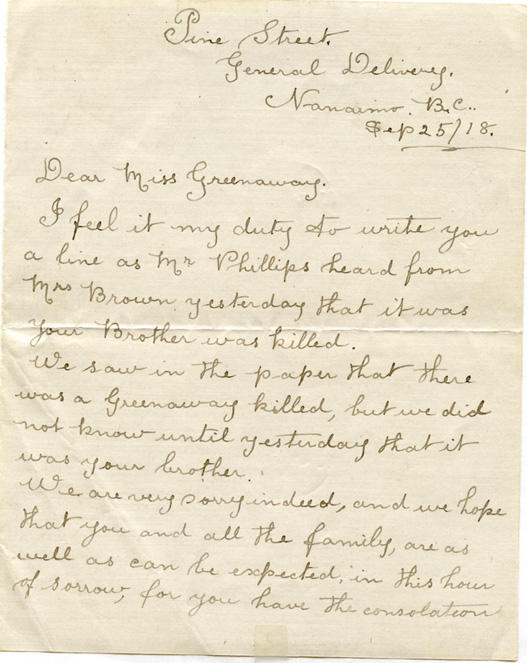 Pine Street.
General Delivery.
Nanaimo. B.C..
Sep 25/18.
Dear Miss Greenaway.
I feel it my duty to write you
a line as Mr Phillips heard from
Mrs Brown yesterday that it was
your Brother was killed.
We saw in the paper that there
was a Greenaway killed, but we did
not know until yesterday that it
was your brother.
We are very sorry indeed, and we hope
that you and all the family, are as
well as can be expected, in this hour
of sorrow, for you have the consolation